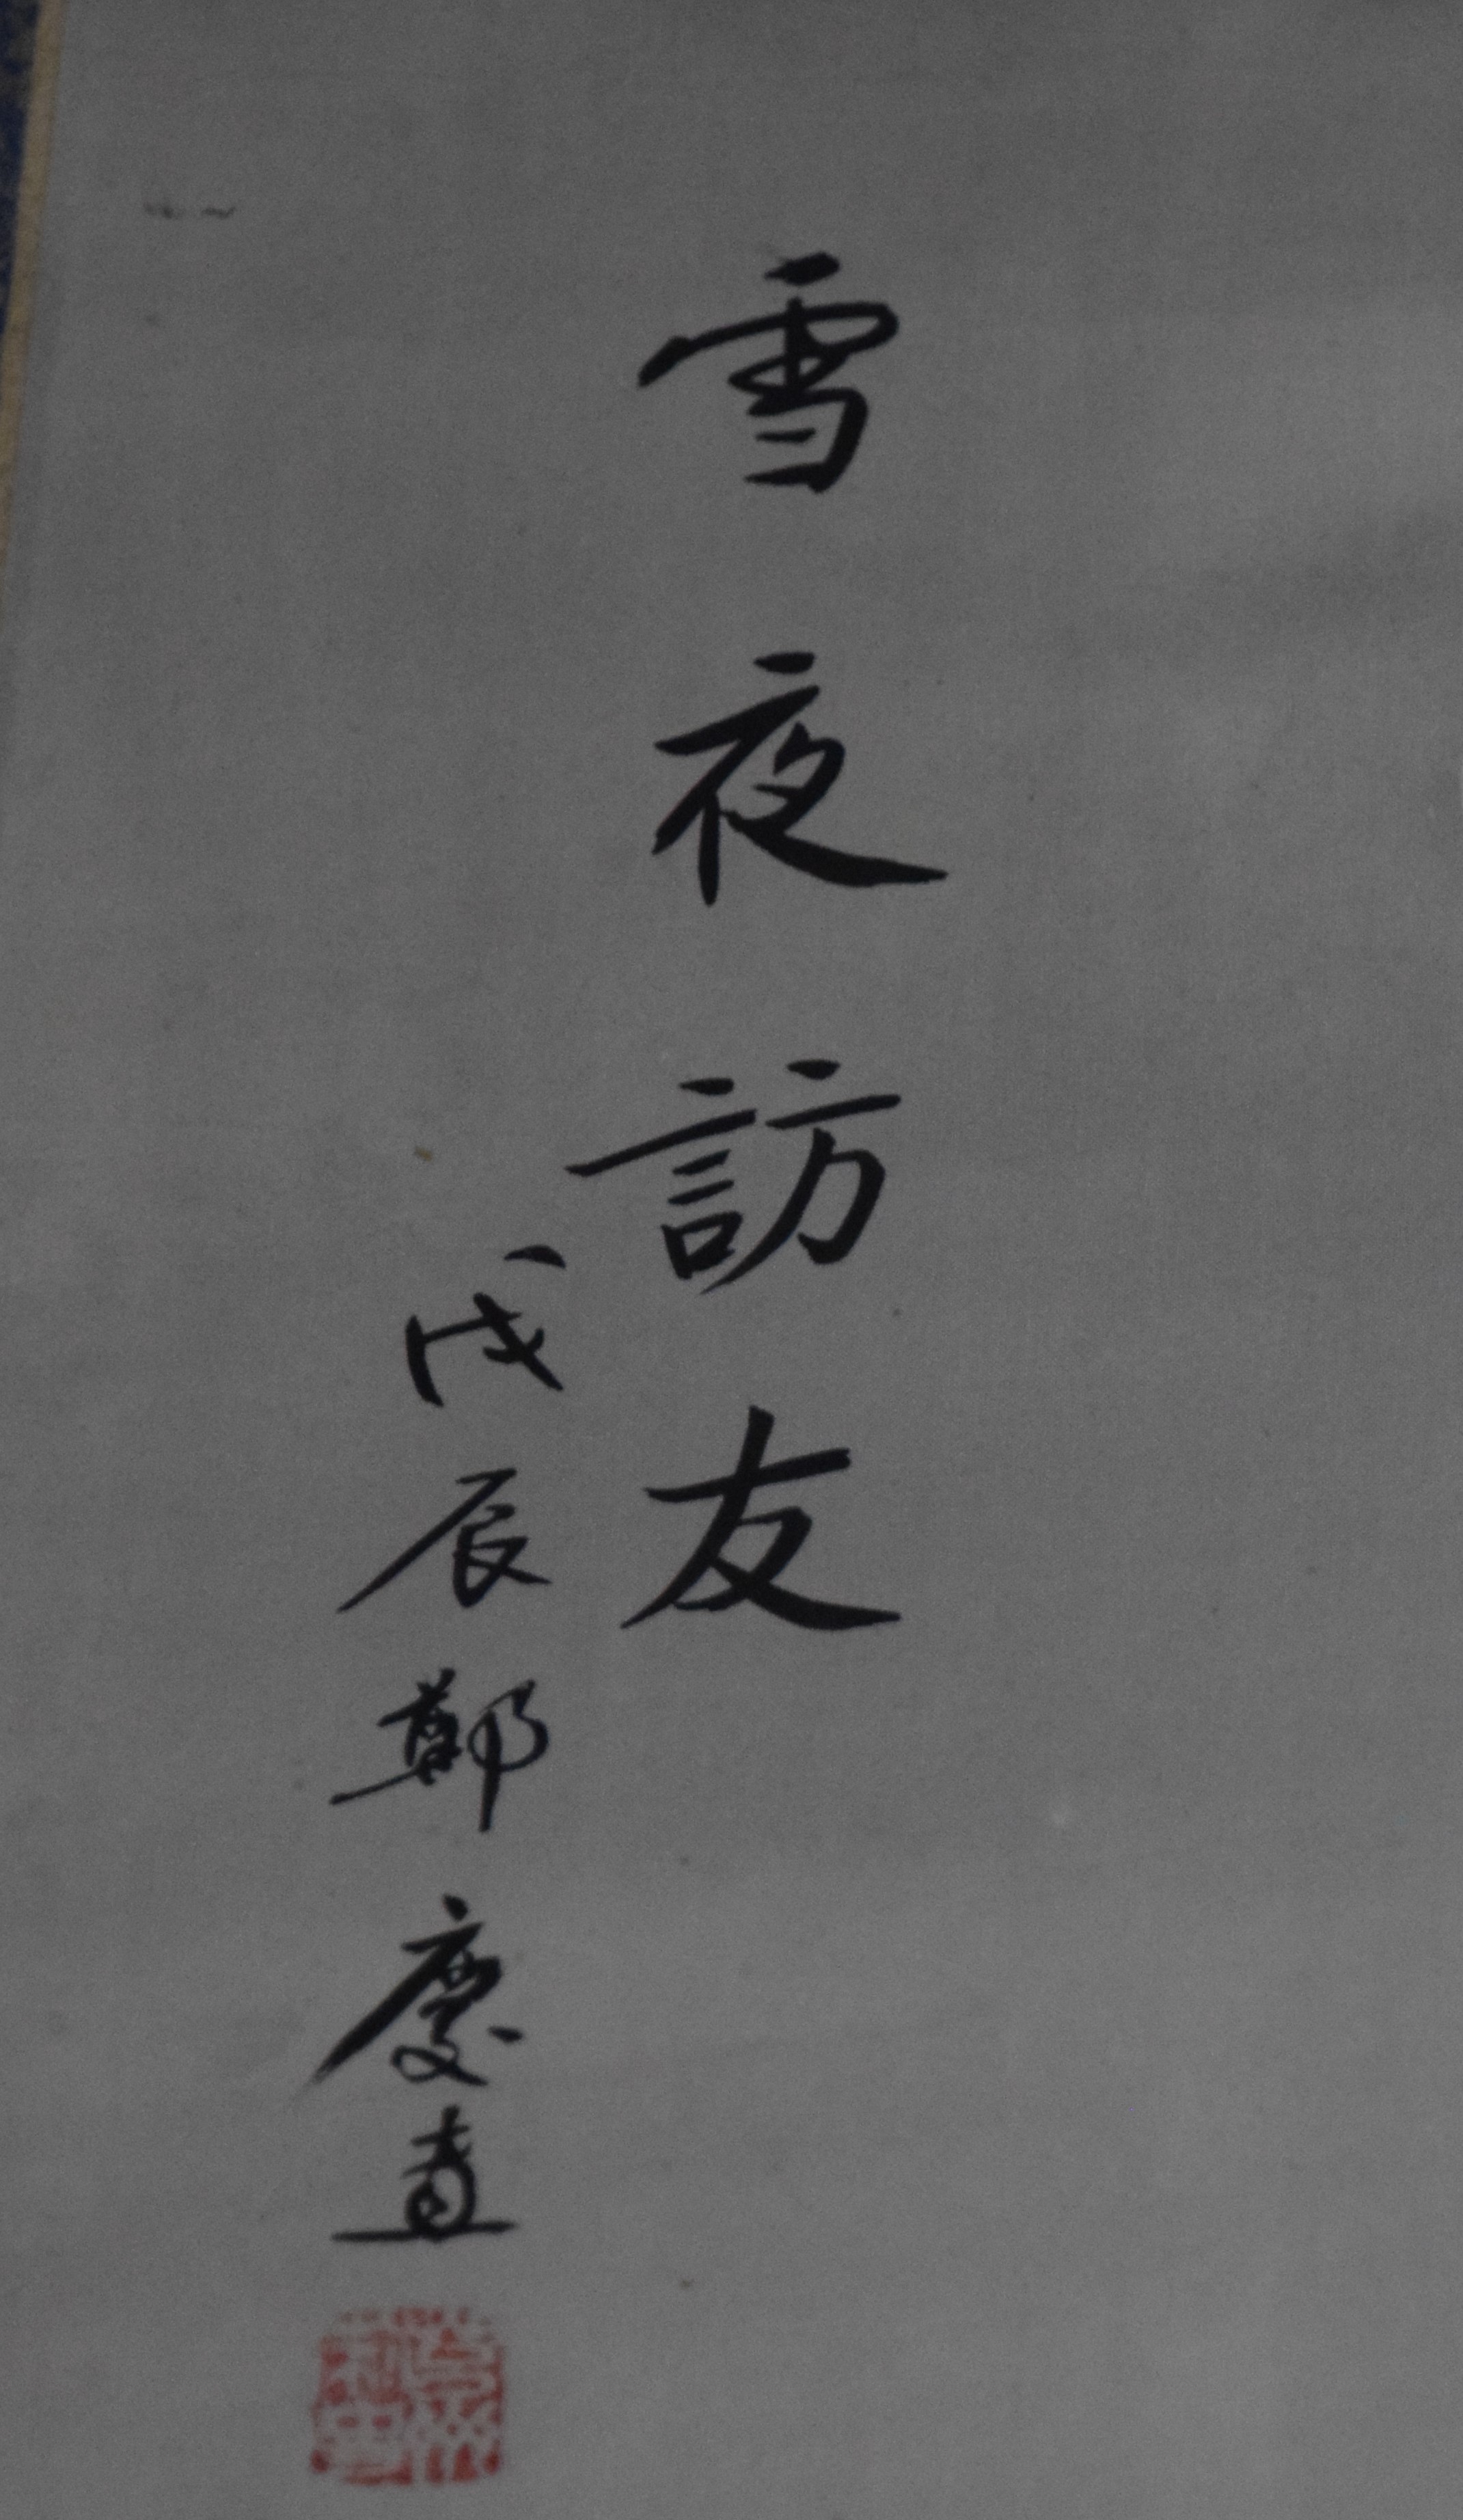 雪夜訪友
戊辰鄭慶